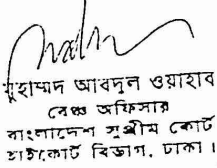 মুহাম্মদ আবদুল ওয়াহাব
বেঞ্চ অফিসার
বাংলাদেশ সুপ্রীম কোর্ট
হাইকোর্ট বিভাগ, ঢাকা।